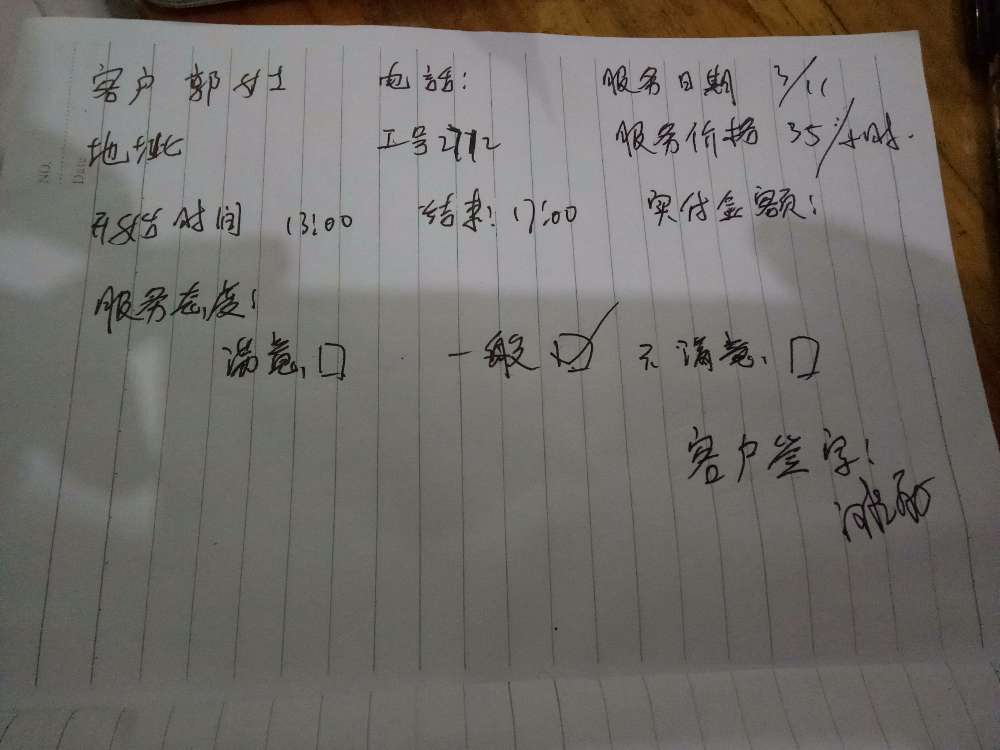 客户 郭女士 电话: 服务日期 3/11
地址 工号2712 服务价格 35/小时.
开始时间 13:00 结束: 17:00 实付金额:
服务态度:
满意 □ 一般 ☑ 不满意 □
客户签字:
NO.
Date